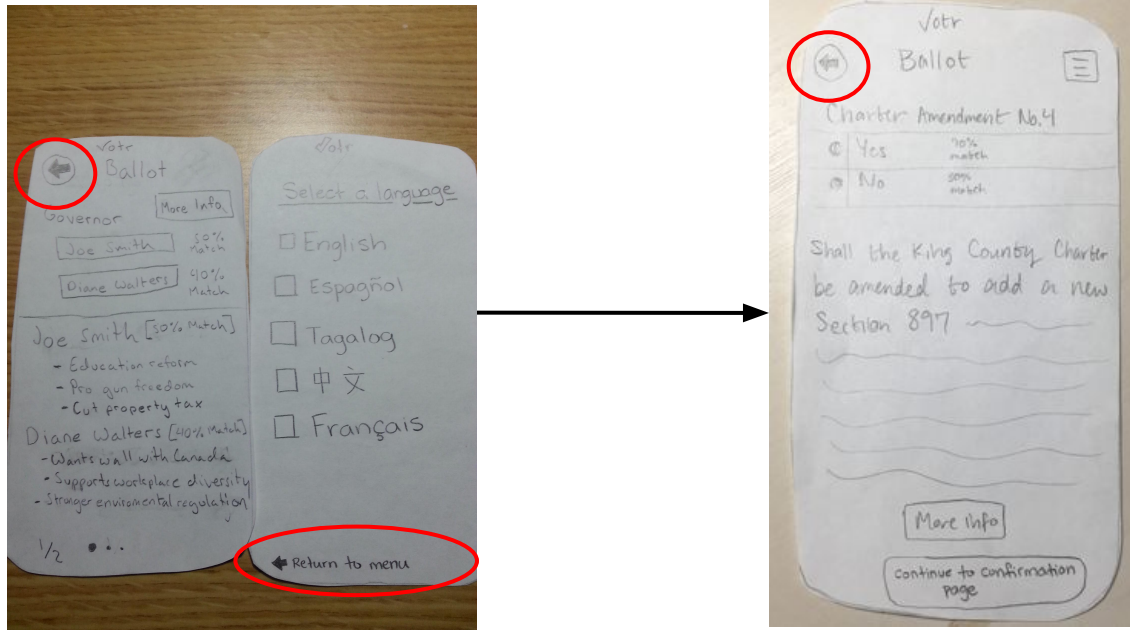 Votr
Ballot
Governor
More Info
Joe Smith
50%
Match
Diane Walters
40%
Match
Joe Smith [50% Match]
- Education reform
- Pro gun freedom
- Cut property tax
Diane Walters [40% Match]
- Wants wall with Canada
- Supports workplace diversity
- Stronger enviromental regulation
1/2
Votr
Select a language
English
Espagñol
Tagalog
中文
Français
Return to menu
Votr
Ballot
Charter Amendment No.4
Yes
70%
match
No
50%
match
Shall the King County Charter
be amended to add a new
Section 897
More info
continue to confirmation
page